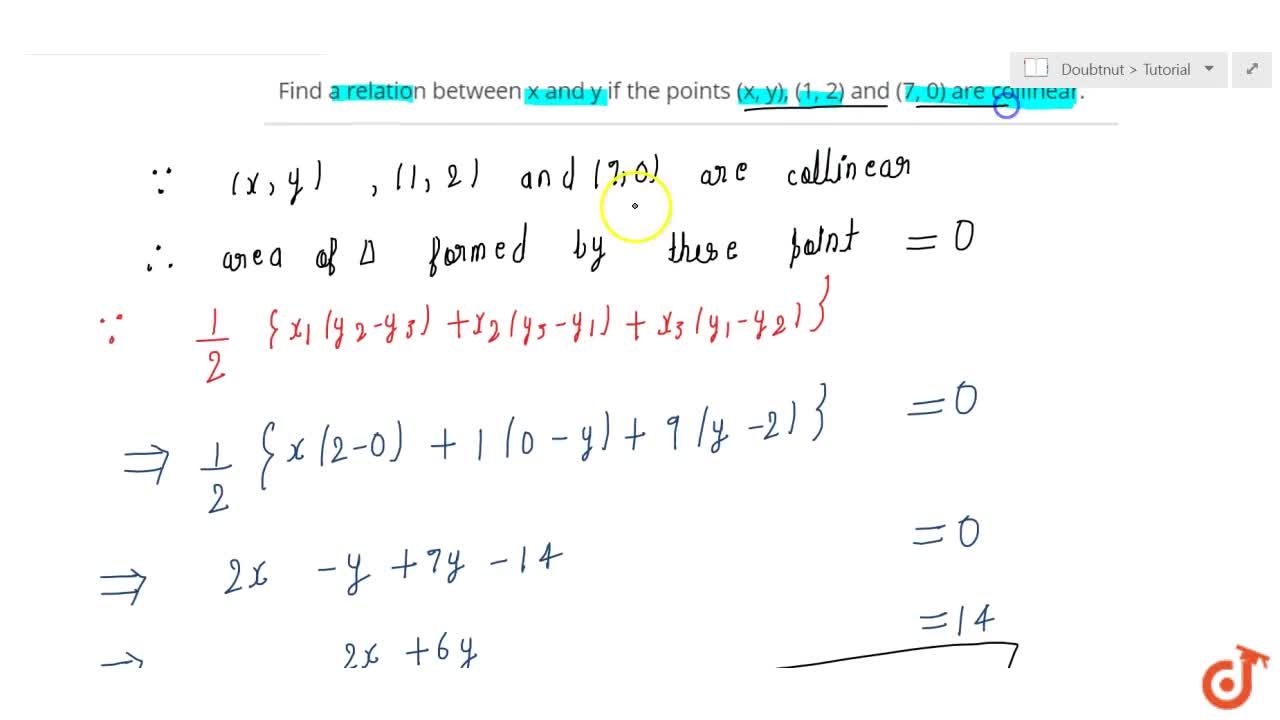 Doubtnut > Tutorial
Find a relation between x and y if the points (x, y), (1, 2) and (7, 0) are collinear.
∵ (x, y) , (1, 2) and (7, 0) are collinear
∴ area of Δ formed by these point = 0
∵ 1/2 {x₁(y₂-y₃) + x₂(y₃-y₁) + x₃(y₁-y₂)}
⇒ 1/2 {x(2-0) + 1(0-y) + 9(y-2)} = 0
⇒ 2x -y +7y -14 = 0
⇒ 2x +6y = 14